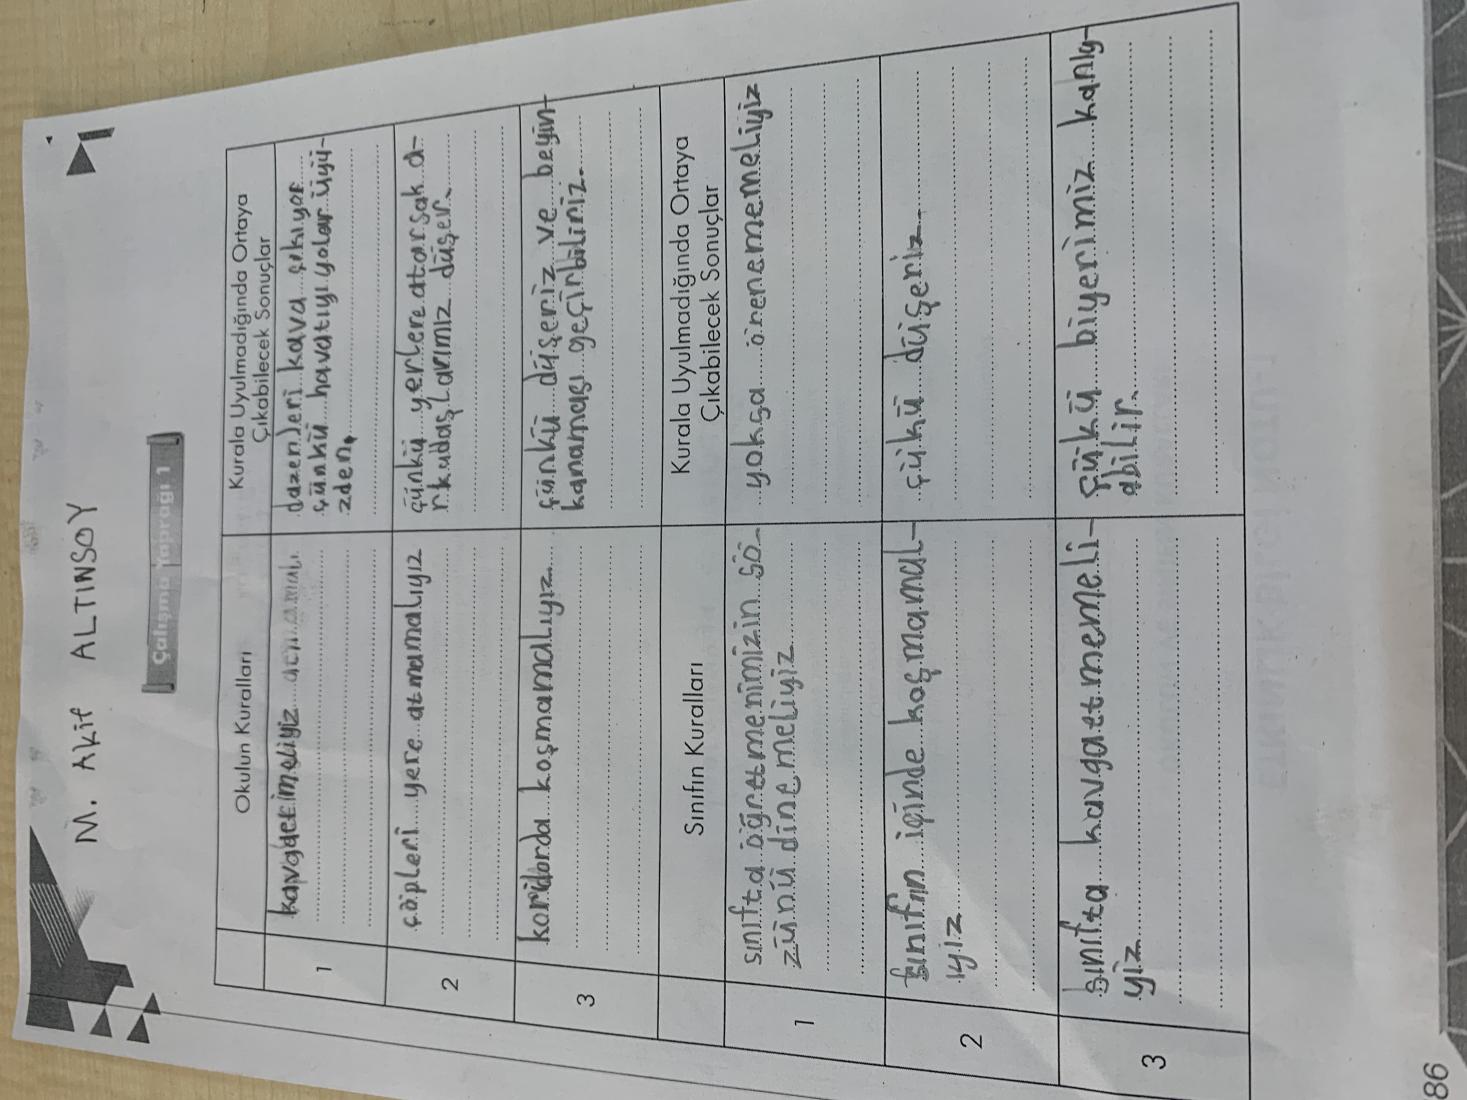 M. Akif ALTINSOY
Çalışma Yaprağı 1
Okulun Kuralları
Kurala Uyulmadığında Ortaya
Çıkabilecek Sonuçlar
1
bazenleri kava çıkıyor
çünkü havatıyı yolar üyü-
zden,
2
çöpleri yere atmamalıyız
çünkü yerlere atarsak a-
rkudaşlarımız düşer.
3
koridorda koşmamalıyız.
çünkü düşeriz ve beyin
kanaması geçirbiliriz.
Sınıfın Kuralları
Kurala Uyulmadığında Ortaya
Çıkabilecek Sonuçlar
1
sınıfta öğretmenimizin sö-
zünü dinemeliyiz
yoksa örenememeliyiz
2
Sınıfın içinde koşmamal-
ıyız
çükü düşeriz.
3
sınıfta kavgaetmemeli-
yiz
çükü biyerimiz kanıy-
abilir.
86